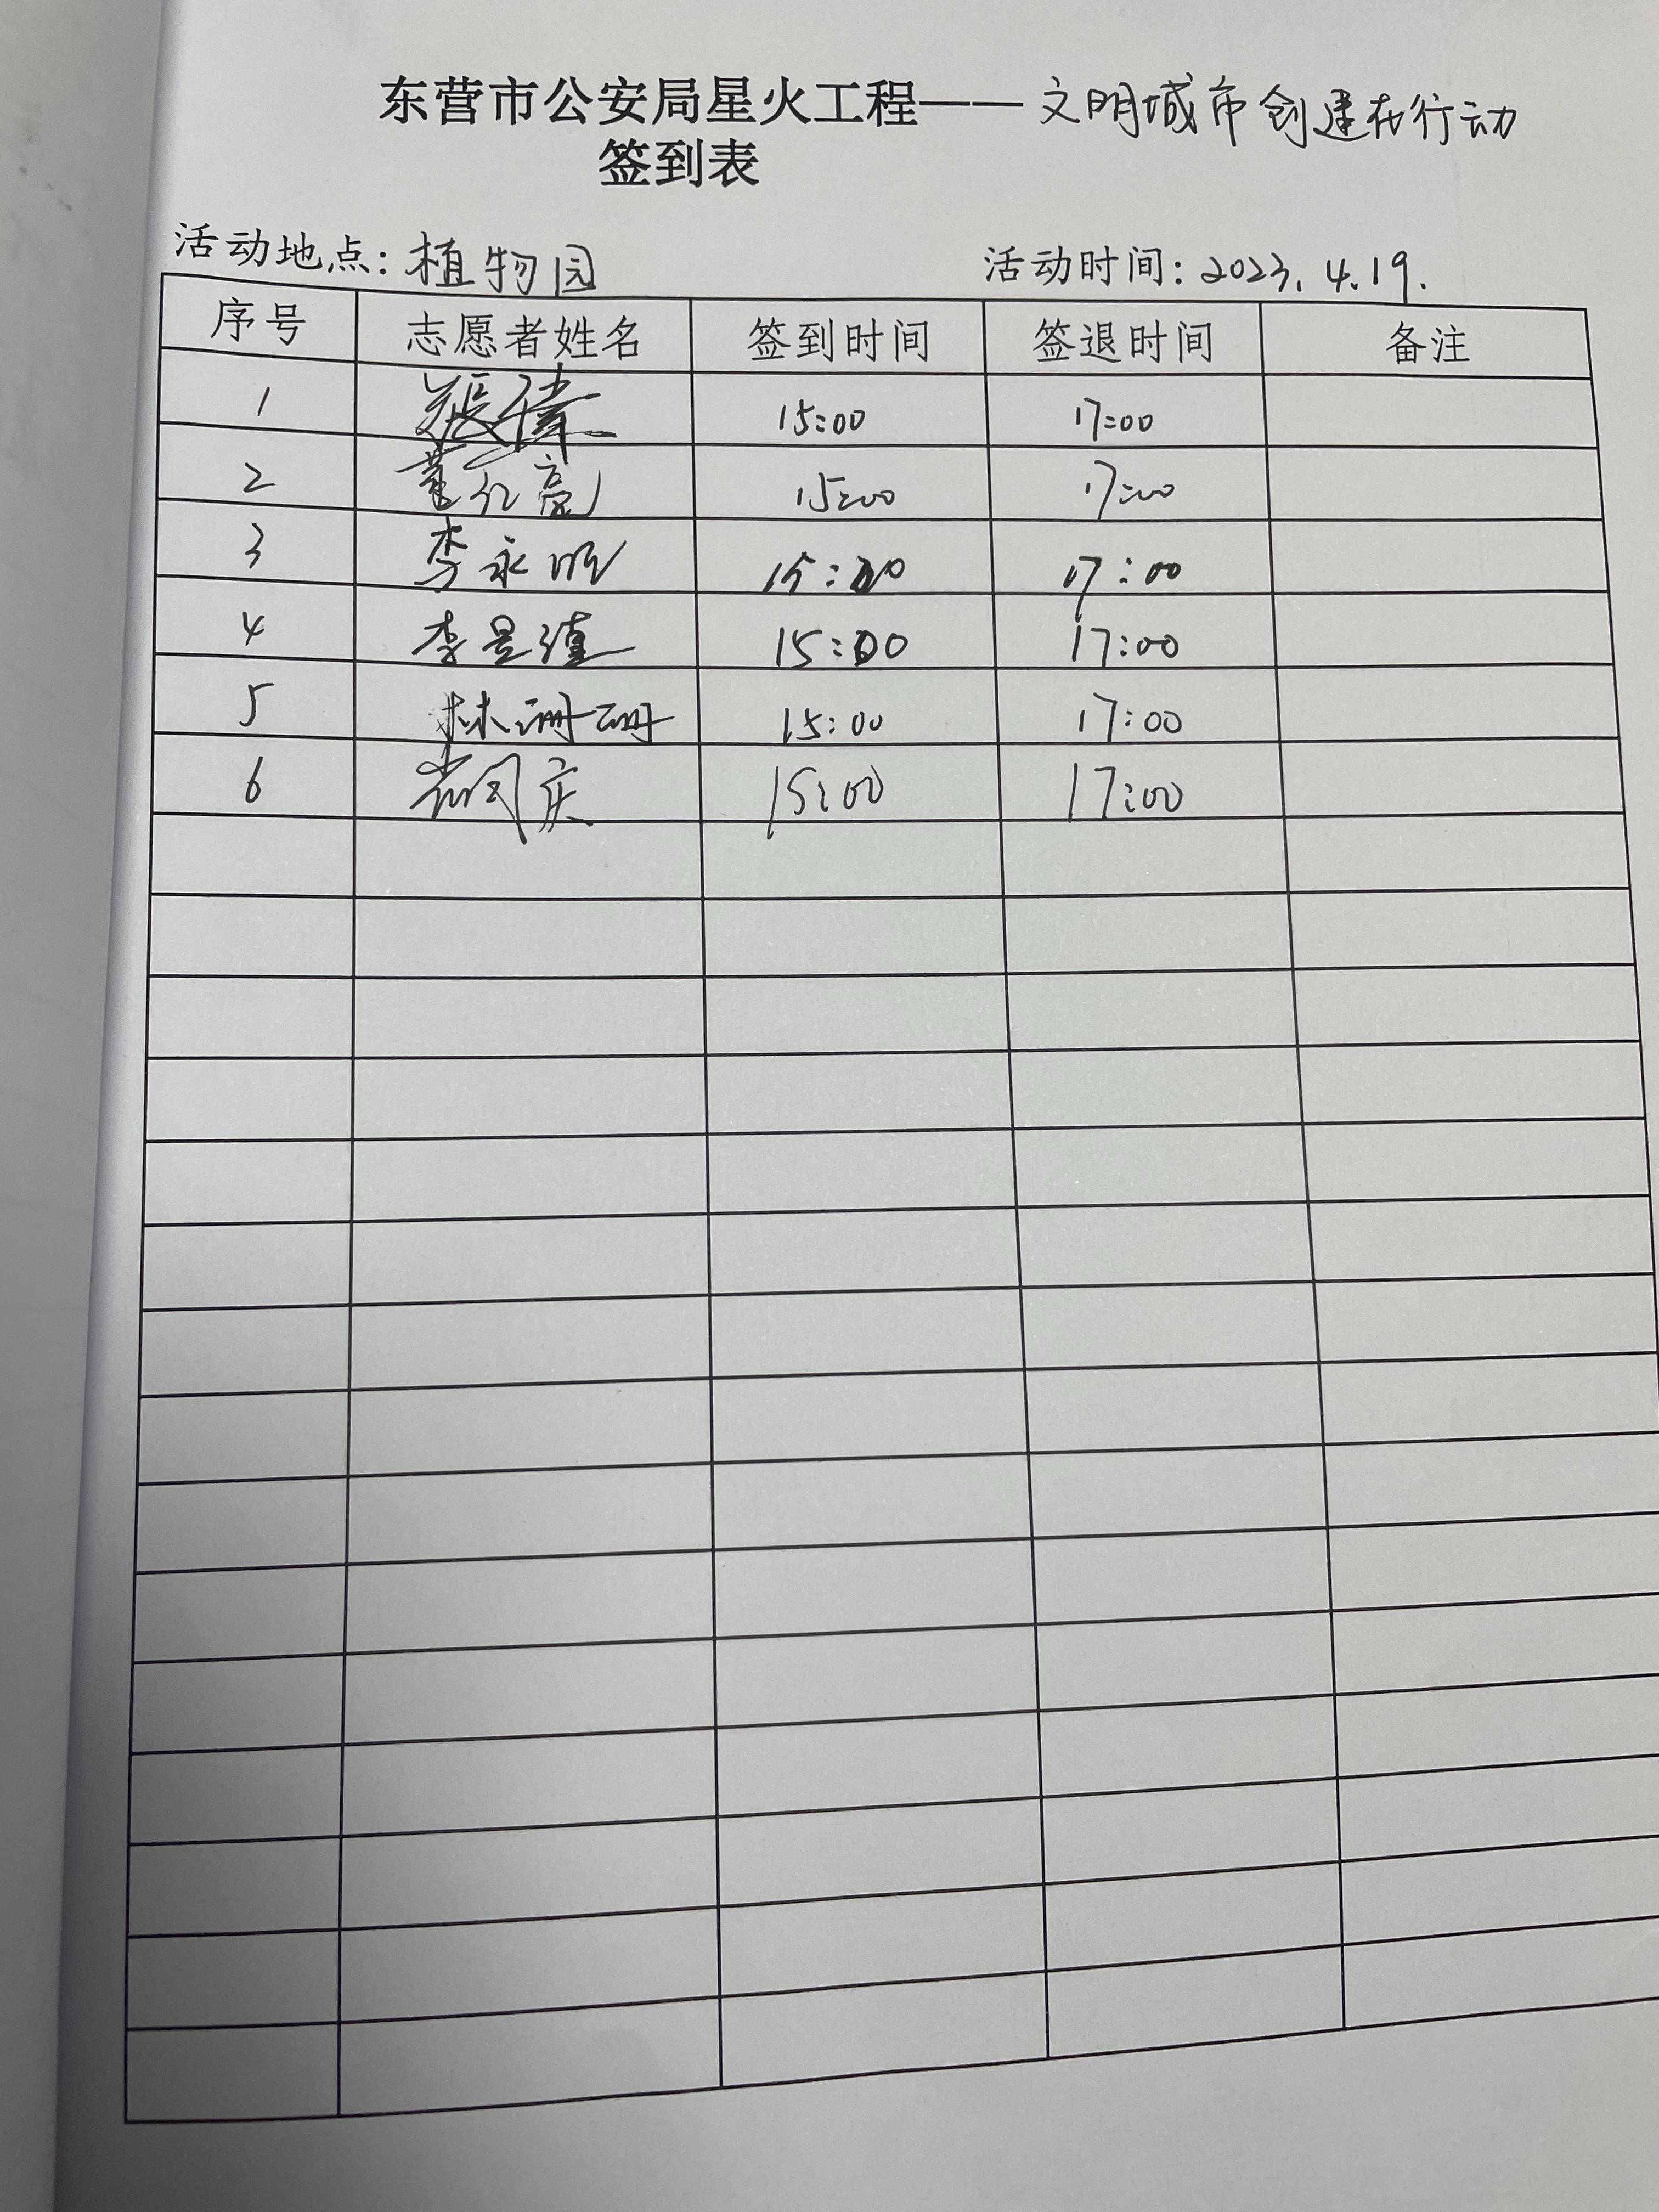 东营市公安局星火工程——文明城市创建在行动
签到表
活动地点:植物园 活动时间:2023.4.19.
序号 志愿者姓名 签到时间 签退时间 备注
1 15:00 17:00
2 董红亮 15:00 17:00
3 李永明 15:00 17:00
4 李昱值 15:00 17:00
5 林珊珊 15:00 17:00
6 尚同庆 15:00 17:00